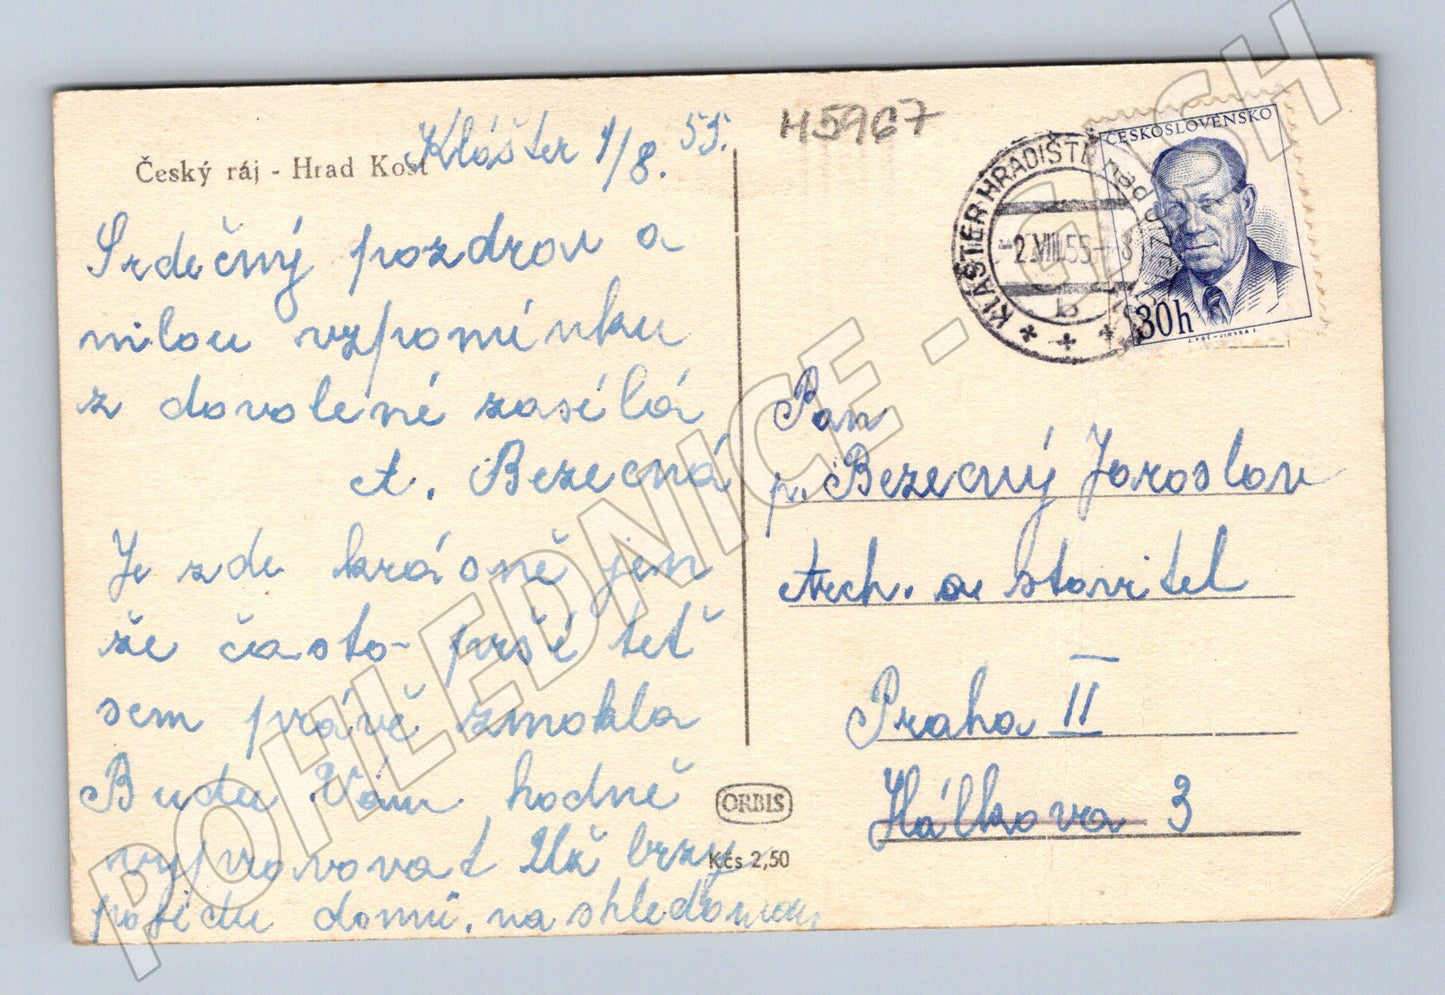 H5967
Klášter 1/8. 55.
Český ráj - Hrad Kost
Srdečný pozdrav a
milou vzpomínku
z dovolené zasílá
A. Bezecná
Je zde krásně jen
že často prší teť
sem právě zmokla
Budu Vám hodně
vypravovat Už brzy
pojedu domů. na shledanou
ORBIS
Kčs 2,50
ČESKOSLOVENSKO
30h
KLÁŠTER HRADIŠTĚ nad JIZEROU
-2.VIII.55-8
b
Pan
p. Bezecný Jaroslav
Arch. a stavitel
Praha II
Hálkova 3
POHLEDNICE - CASH